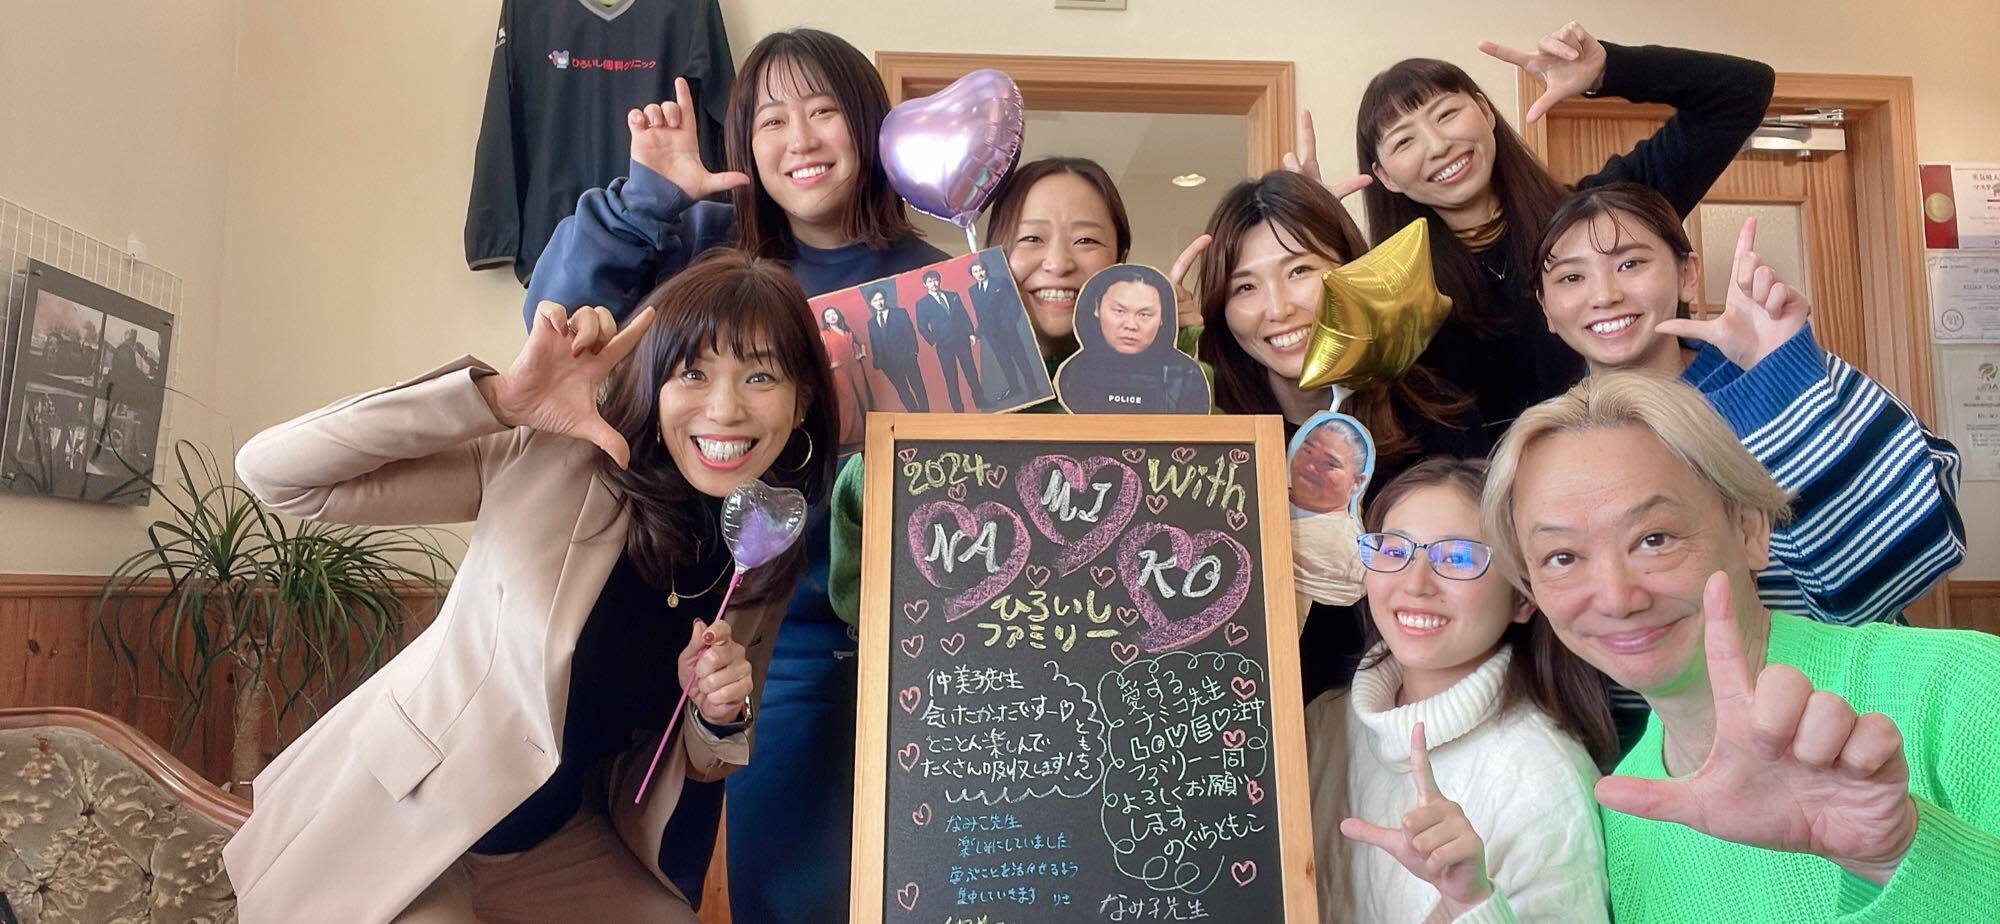 ひろいし歯科クリニック
POLICE
2024 With
NA MI KO
ひろいし
ファミリー
仲美子先生
会いたかったですー♡
とことん楽しんで
たくさん吸収します!
ともちん
愛する先生
ナミコ先生
LOVE♡注中
ファミリー一同
よろしくお願い
します
のぐちともこ
なみこ先生
楽しみにしていました
学ぶことを活かせるよう
集中していきます りさ
なみ子先生